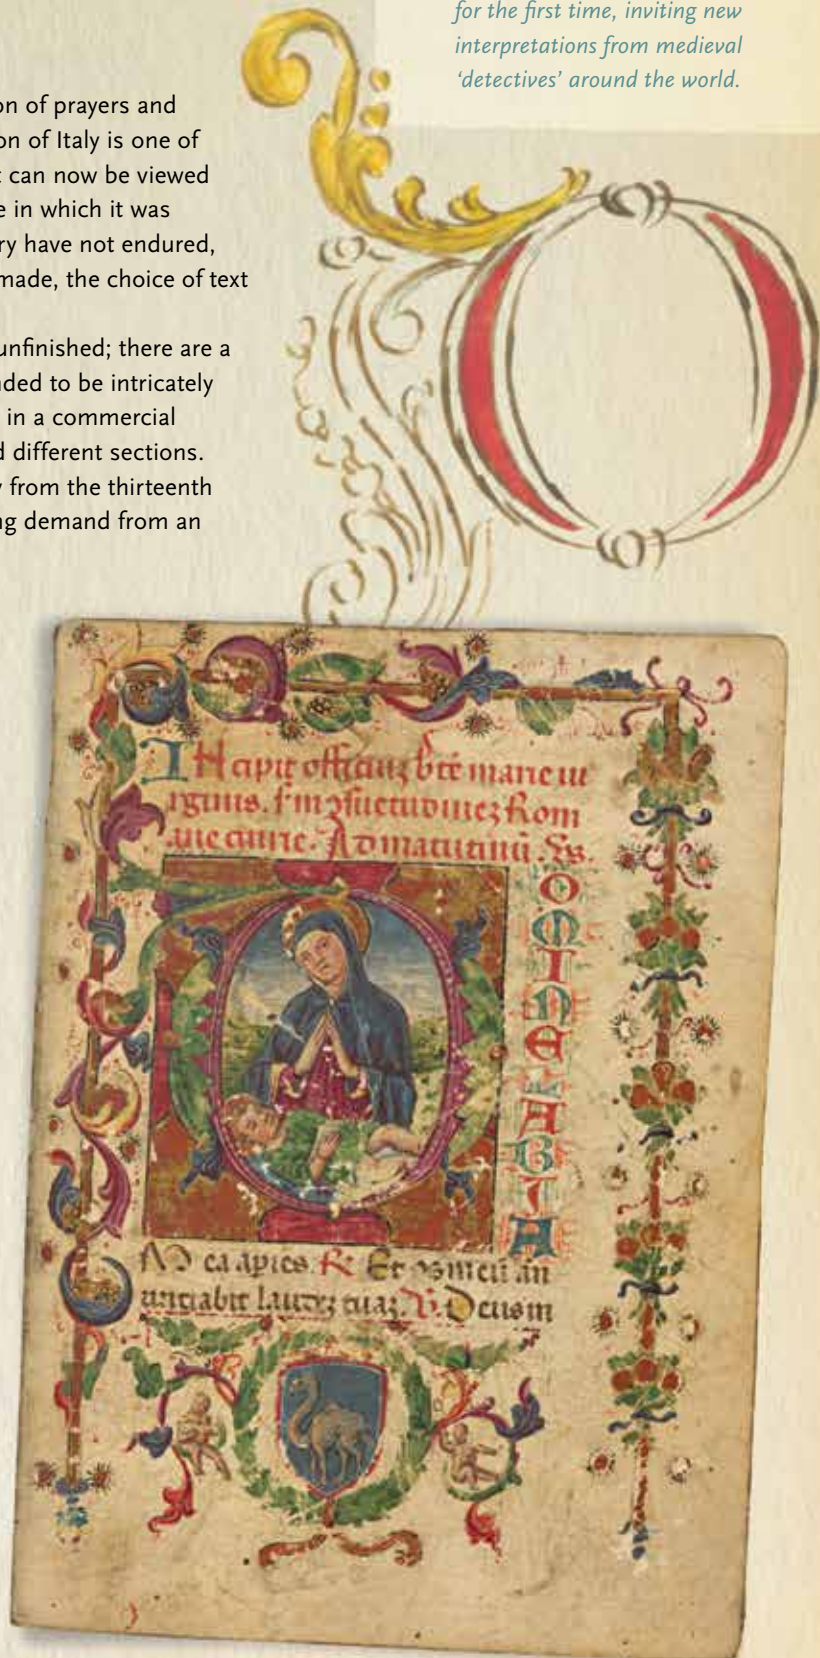 for the first time, inviting new
interpretations from medieval
‘detectives’ around the world.
on of prayers and
on of Italy is one of
t can now be viewed
e in which it was
ry have not endured,
made, the choice of text
unfinished; there are a
nded to be intricately
in a commercial
d different sections.
y from the thirteenth
ng demand from an
INcipit officiuz bte marie ui
rginis. Rom
curie. Ad matutinū.
D
OMINE LABIA
Et os meū an
untiabit laudez tuaz. V. Deus in